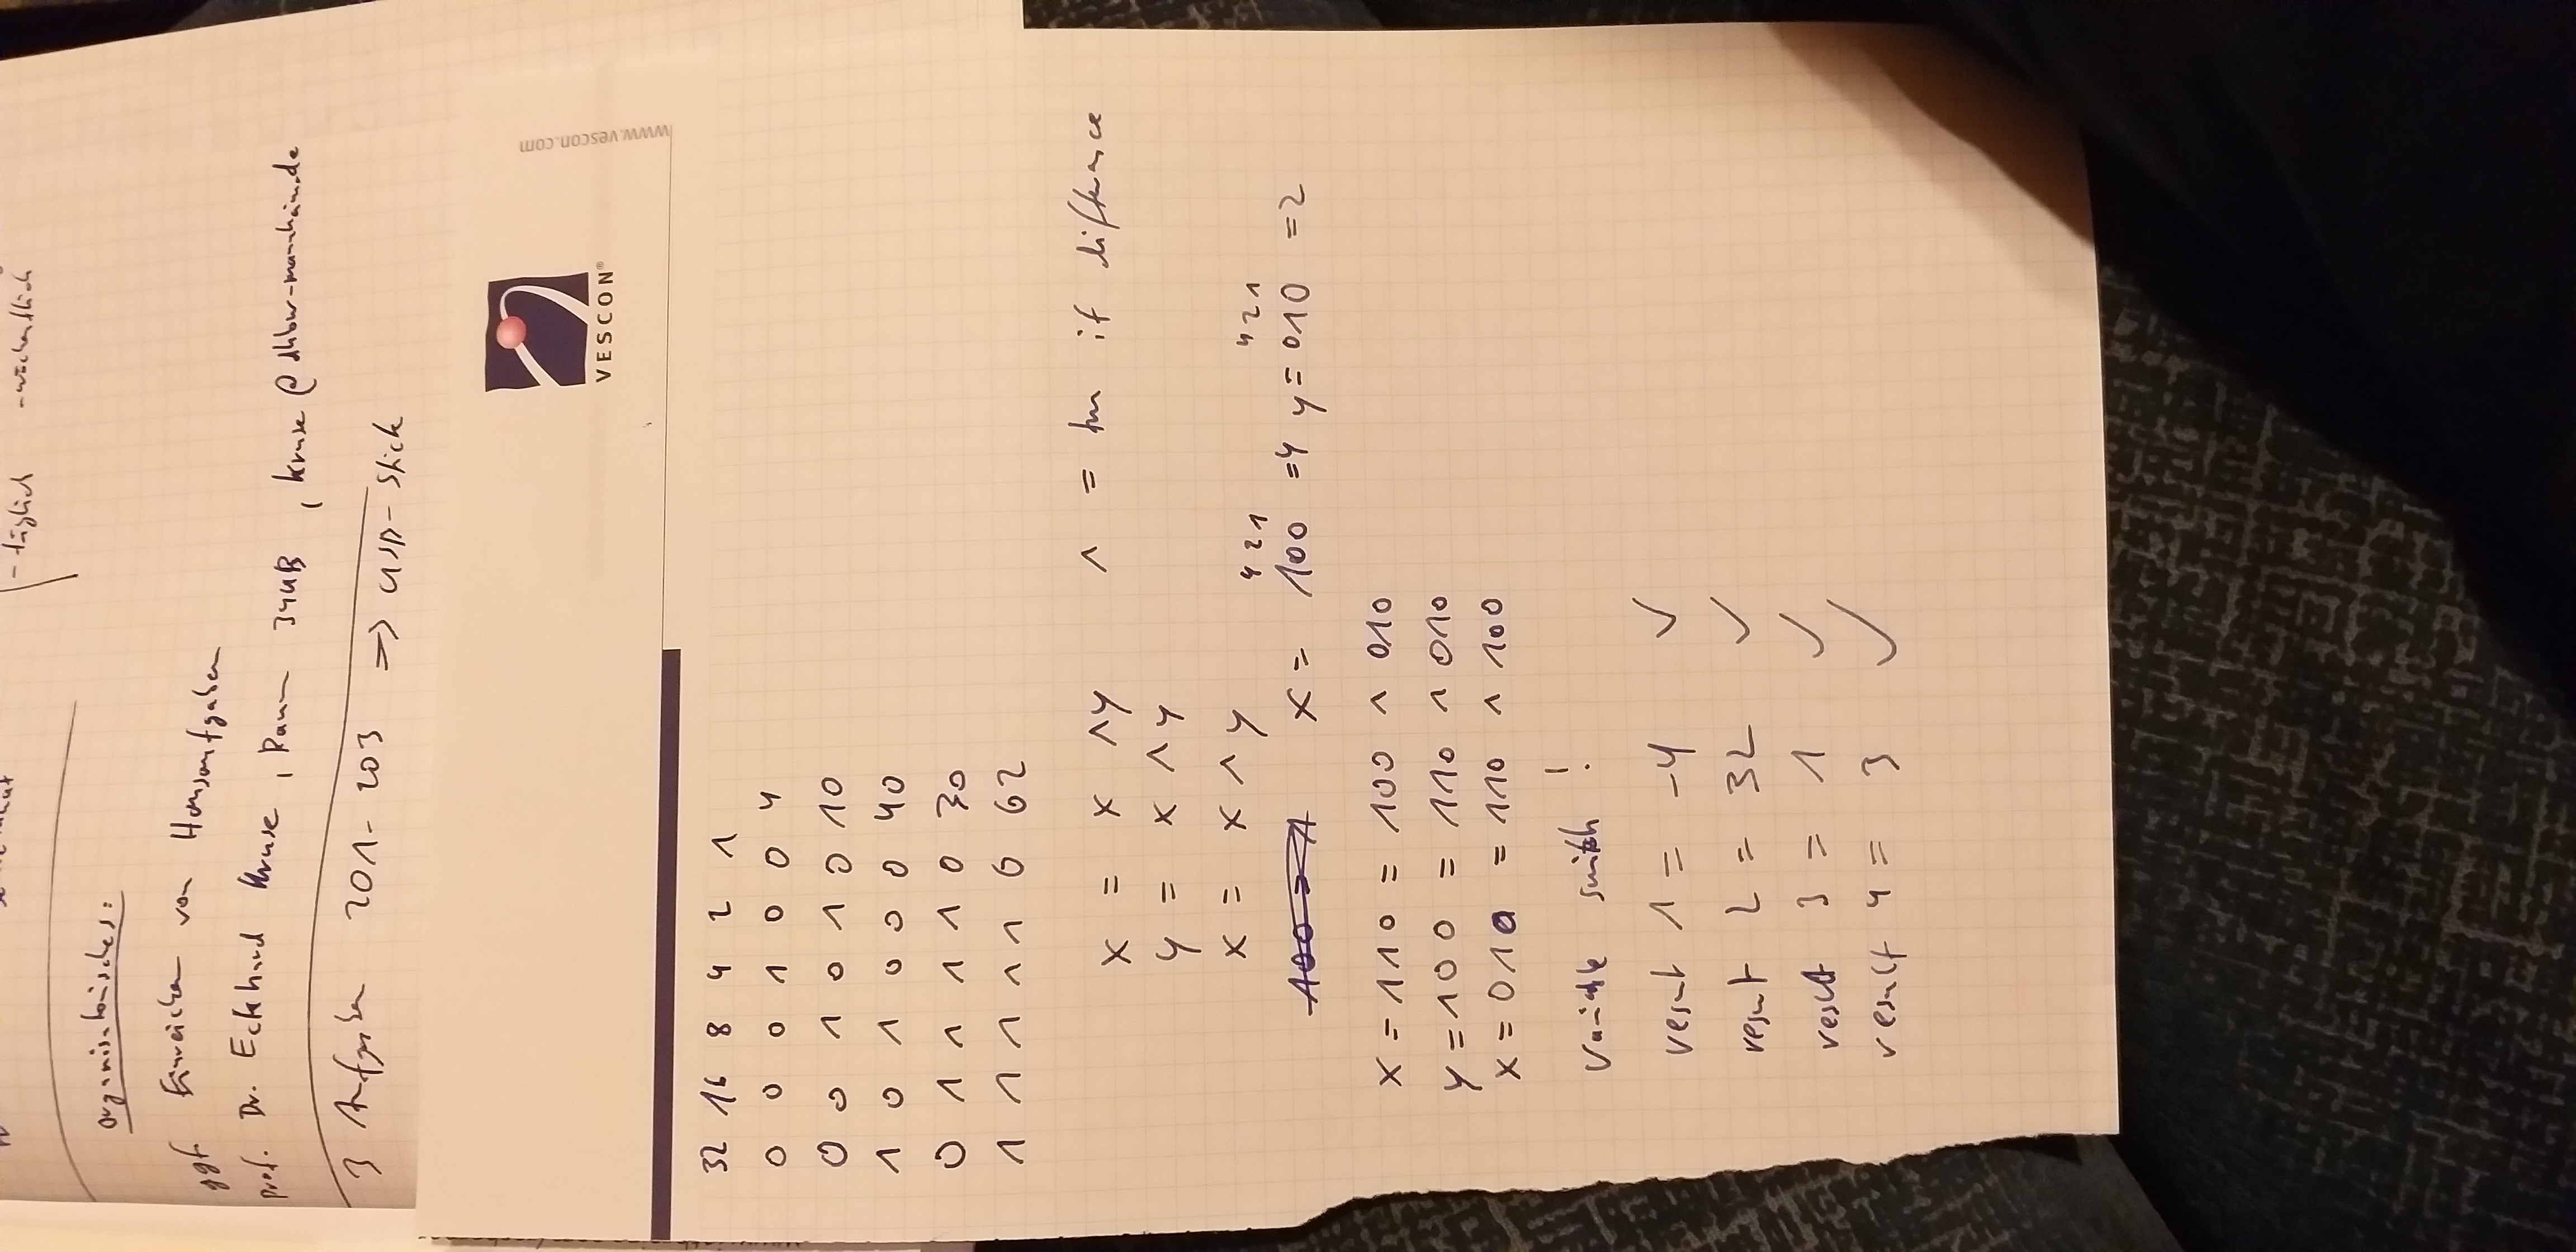 - täglich - wöchentlich
Organisatorisches:
ggf. Einreichen von Hausaufgaben
Prof. Dr. Eckhard Kruse, Raum 344B, kruse@dhbw-mannheim.de
3 Aufgaben 201-203 => USB-Stick
VESCON®
www.vescon.com
32 16 8 4 2 1
0 0 0 1 0 0 4
0 0 1 0 1 0 10
1 0 1 0 0 0 40
0 1 1 1 1 0 30
1 1 1 1 1 0 62
x = x ^ y ^ = true if difference
y = x ^ y
x = x ^ y
4 2 1 4 2 1
x = 100 =4 y = 010 =2
x = 110 = 100 ^ 010
y = 100 = 110 ^ 010
x = 010 = 110 ^ 100
Variable switch!
result 1 = -4 ✓
result 2 = 32 ✓
result 3 = 1 ✓
result 4 = 3 ✓